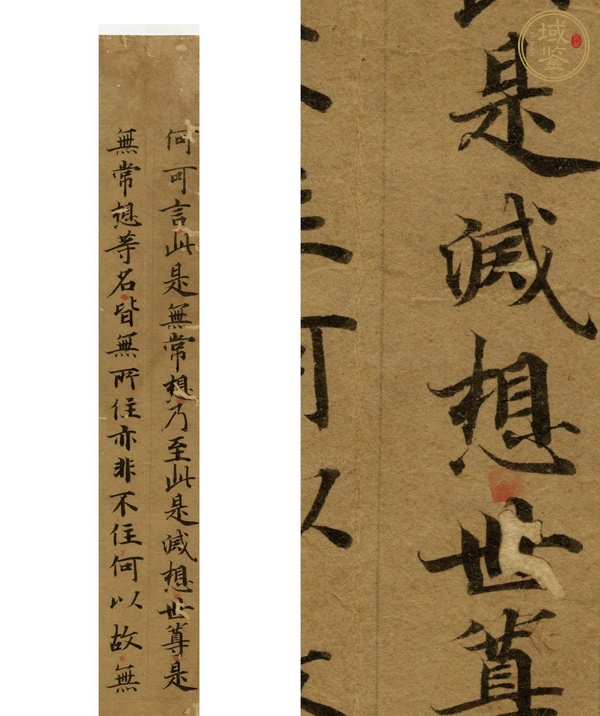 何可言此是無常想乃至此是滅想世尊是
無常想等名皆無所住亦非不住何以故無
域鉴
是滅想世尊